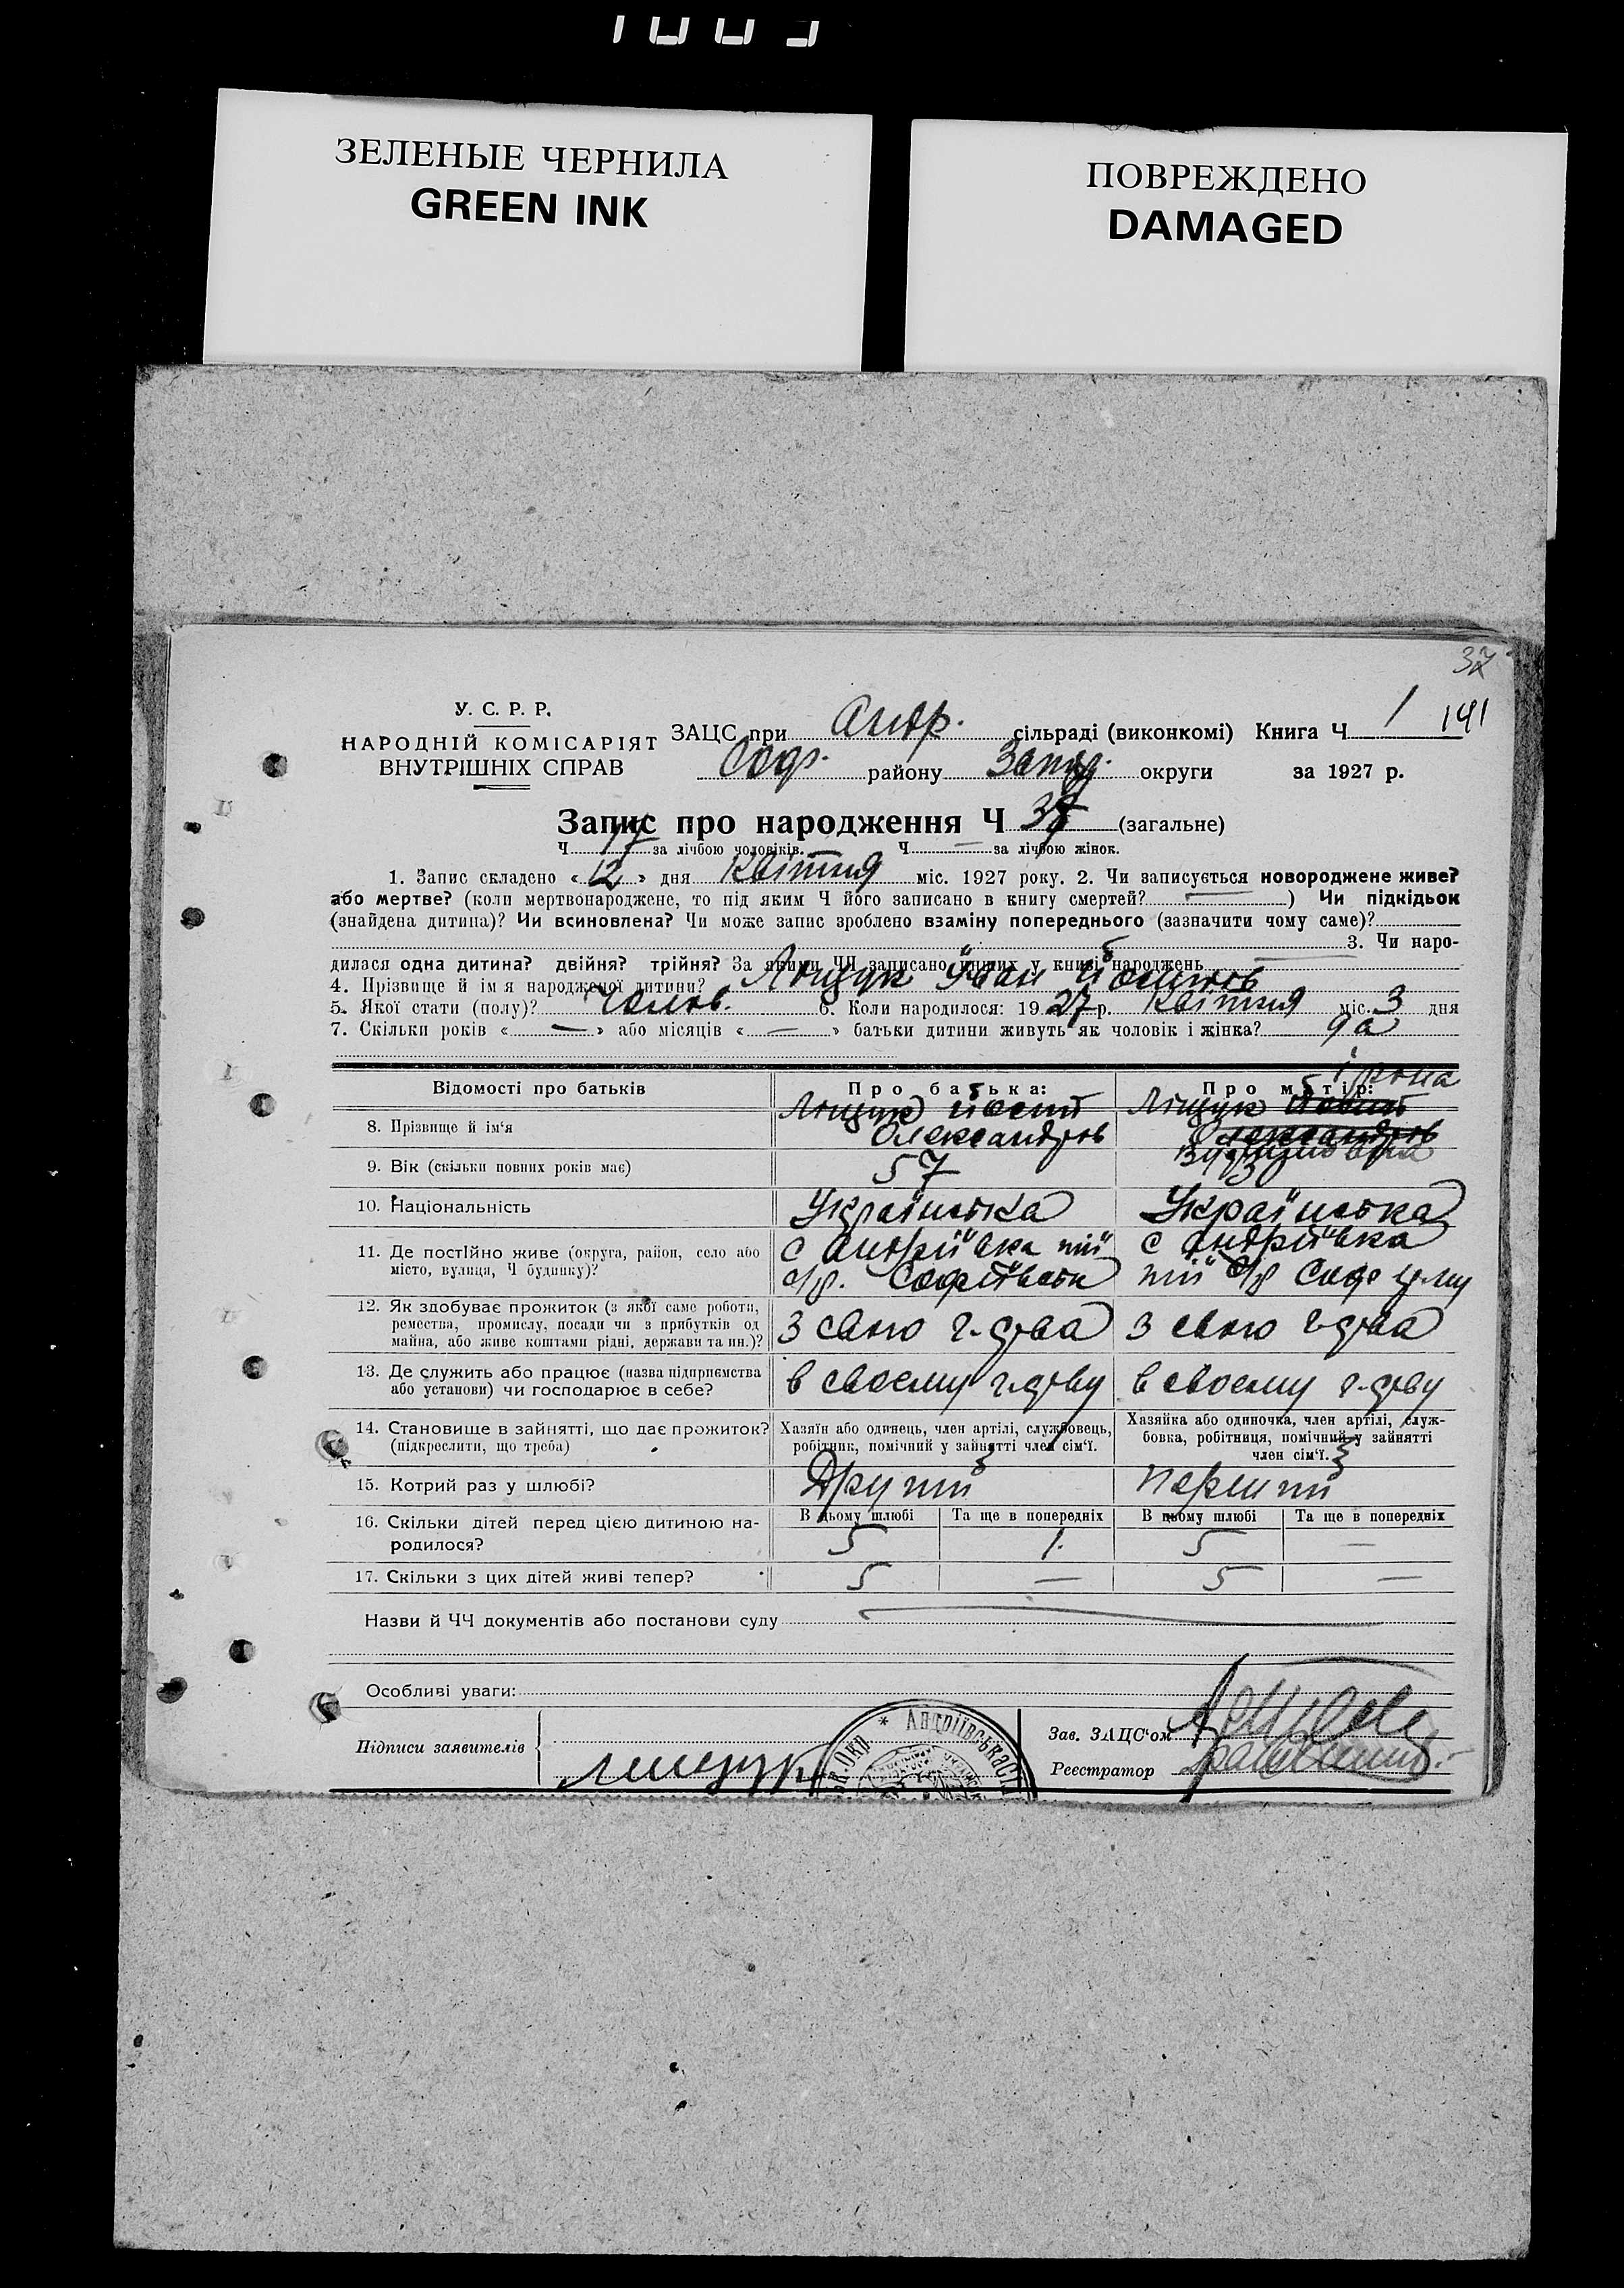 ЗЕЛЕНЫЕ ЧЕРНИЛА
GREEN INK
ПОВРЕЖДЕНО
DAMAGED
37
У. С. Р. Р.
НАРОДНІЙ КОМІСАРІЯТ
ВНУТРІШНІХ СПРАВ
ЗАЦС при Андр. сільраді (виконкомі) Книга Ч 1 141
Соф. району Запор. округи за 1927 р.
Запис про народження Ч 38 (загальне)
Ч 17 за лічбою чоловіків. Ч — за лічбою жінок.
1. Запис складено «12» дня Квітня міс. 1927 року. 2. Чи записується новороджене живе?
або мертве? (коли мертвонароджене, то під яким Ч його записано в книгу смертей? —) Чи підкідьок
(знайдена дитина)? Чи всиновлена? Чи може запис зроблено взаміну попереднього (зазначити чому саме)?
3. Чи наро-
дилася одна дитина? двійня? трійня? За якими ЧЧ записано інших у книзі народжень
4. Прізвище й ім'я народженої дитини? Лощук Іван Йосипов
5. Якої стати (полу)? Чолов. 6. Коли народилося: 1927 р. Квітня міс. 3 дня
7. Скільки років « — » або місяців « — » батьки дитини живуть як чоловік і жінка?
Відомості про батьків Про батька: Про матір:
8. Прізвище й ім'я Лощук Йосип Олександров Лощук Ірина
9. Вік (скільки повних років має) 57
10. Національність Українська Українська
11. Де постійно живе (округа, район, село або
місто, вулиця, Ч будинку)? с Андріївка с Андріївка
12. Як здобуває прожиток (з якої саме роботи,
ремества, промислу, посади чи з прибутків од
майна, або живе коштами рідні, держави та ин.)? З свого г-дтва З свого г-дтва
13. Де служить або працює (назва підприємства
або установи) чи господарює в себе? в своєму г-дтву в своєму г-дтву
14. Становище в зайнятті, що дає прожиток?
(підкреслити, що треба)
Хазяїн або одинець, член артілі, службовець,
робітник, помічний у зайнятті член сім'ї.
Хазяйка або одиночка, член артілі, служ-
бовка, робітниця, помічний у зайнятті
член сім'ї.
15. Котрий раз у шлюбі? Другий Перший
16. Скільки дітей перед цією дитиною на-
родилося?
В цьому шлюбі Та ще в попередніх В цьому шлюбі Та ще в попередніх
5 1. 5 —
17. Скільки з цих дітей живі тепер? 5 — 5 —
Назви й ЧЧ документів або постанови суду
Особливі уваги:
Підписи заявителів
Андріївська
Зав. ЗАЦС'ом
Реєстратор